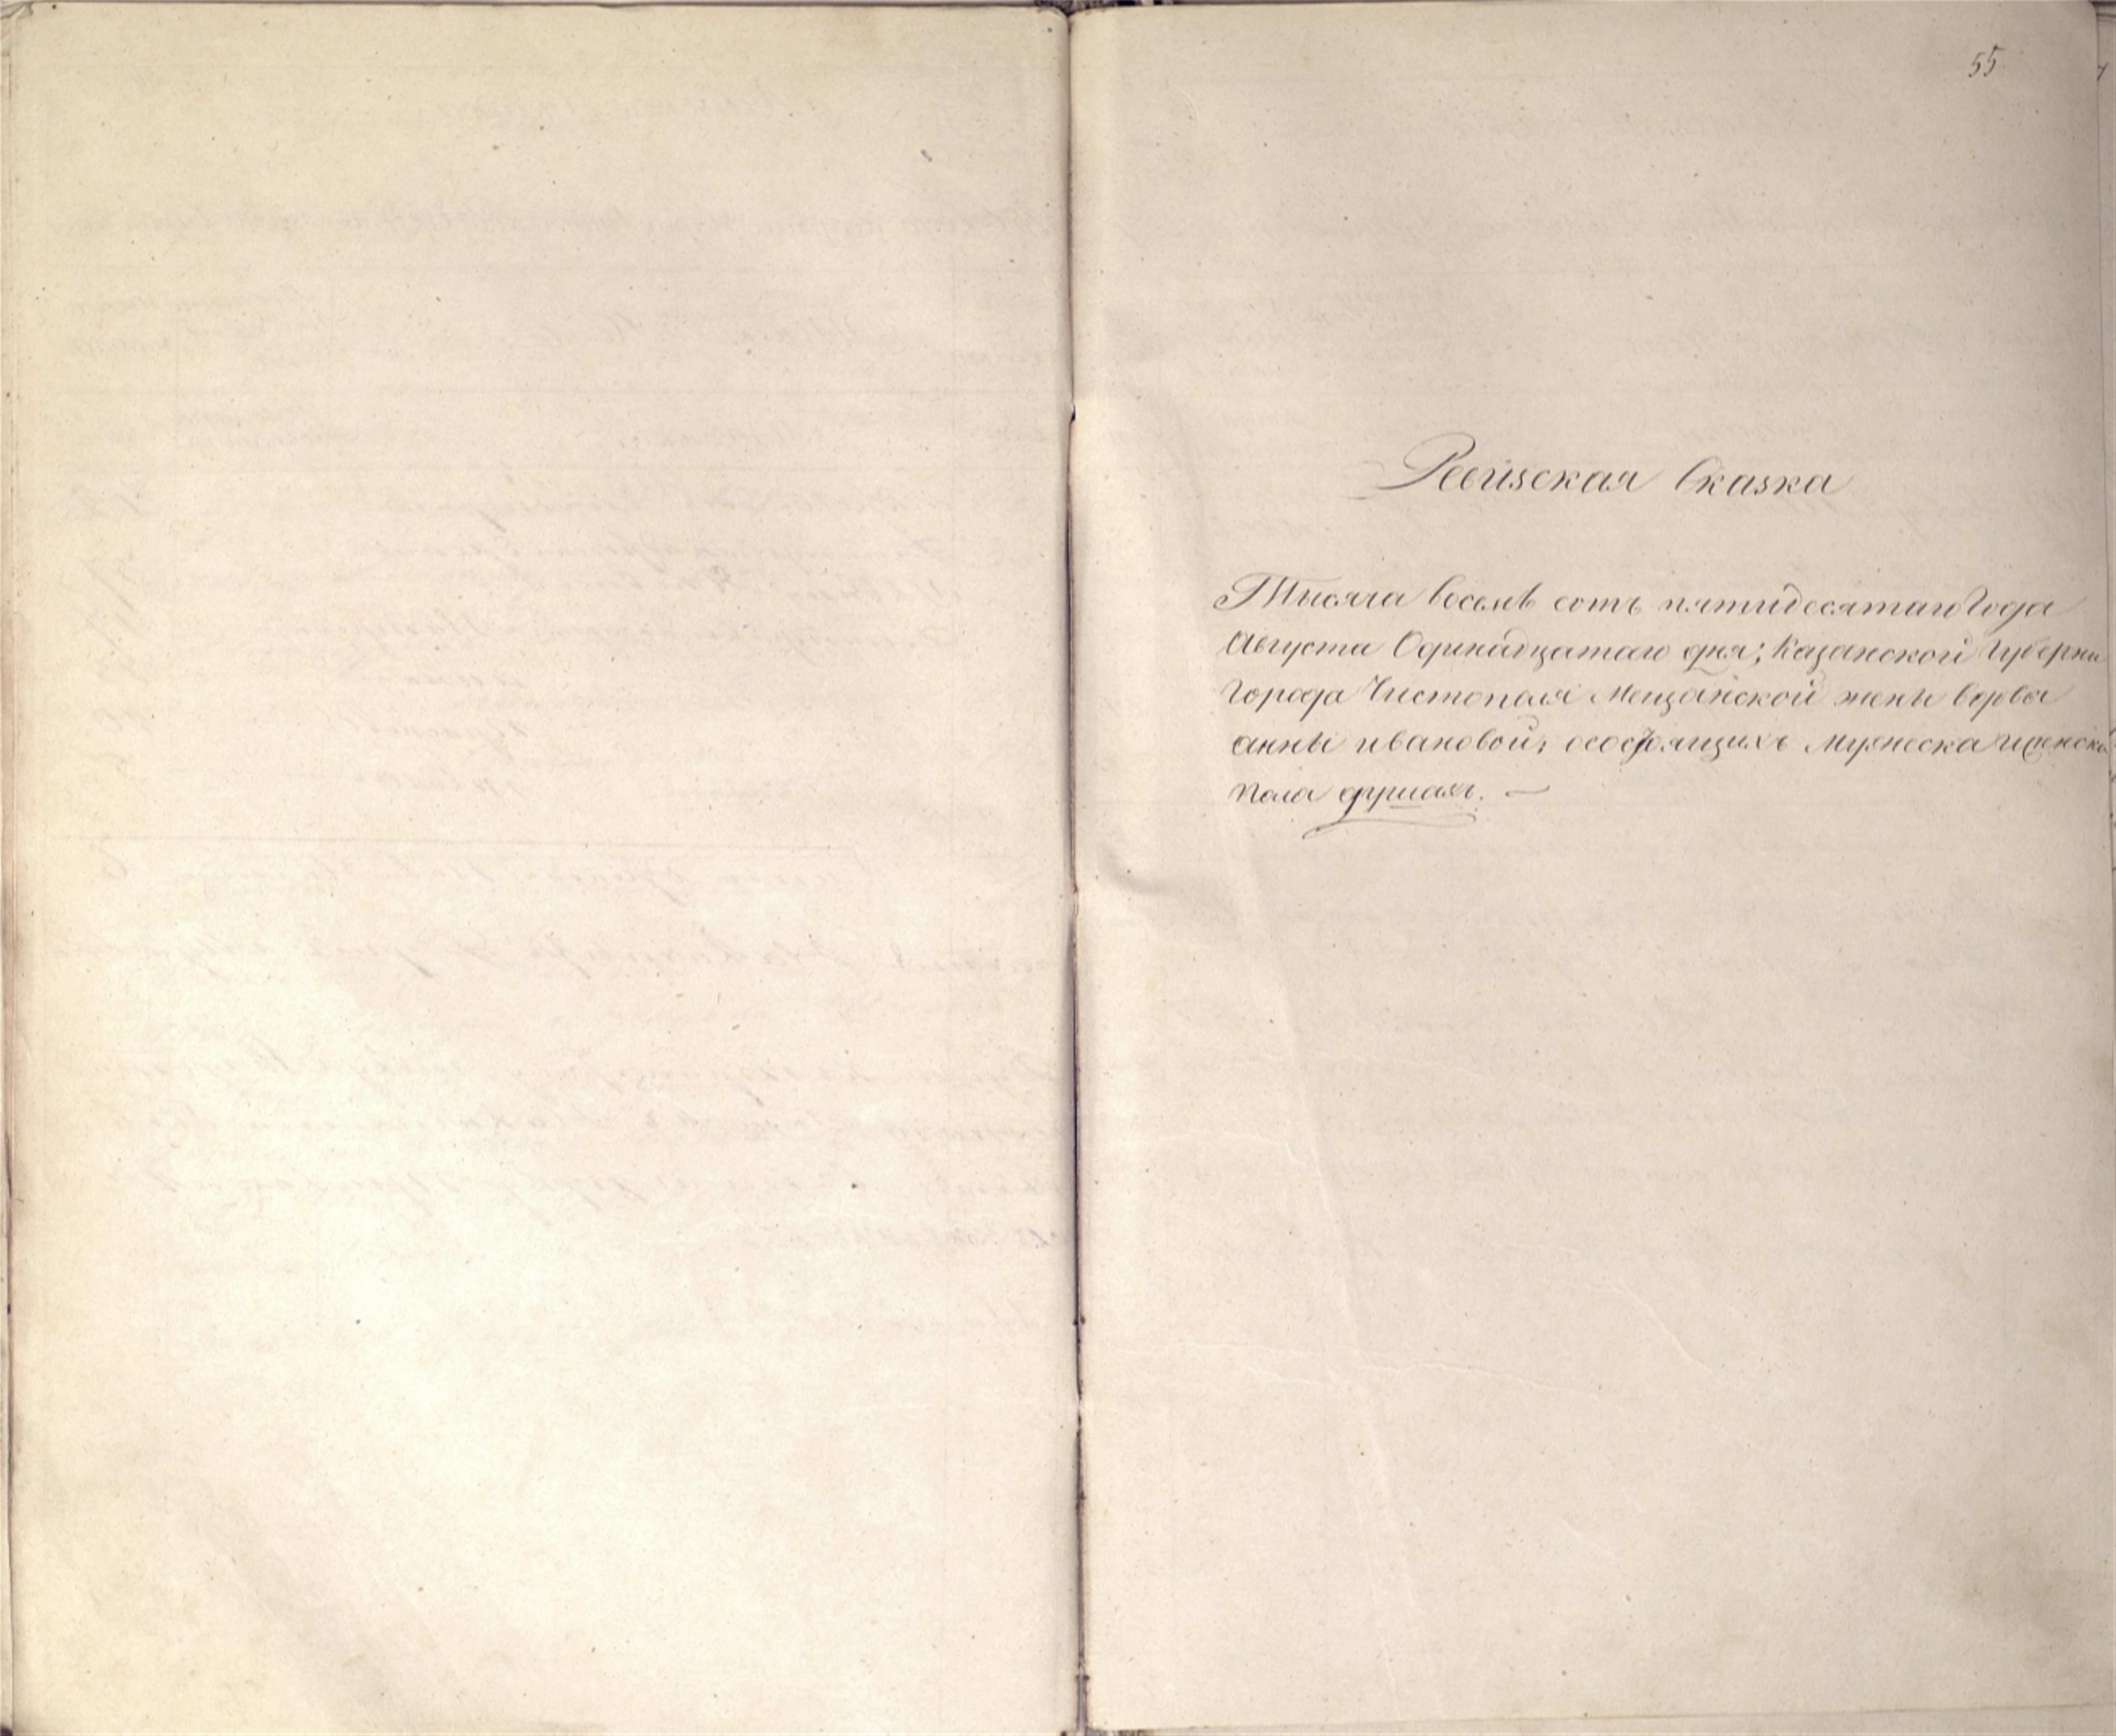 55
Ревизская Сказка
Тысяча восемь сотъ пятидесятаго Года
Августа Одинадцатаго дня; Казанской Губерни
города Чистополя Мещанской жены вдовы
анны ивановой; осостоящихъ Мужеска иженска
пола душахъ. —